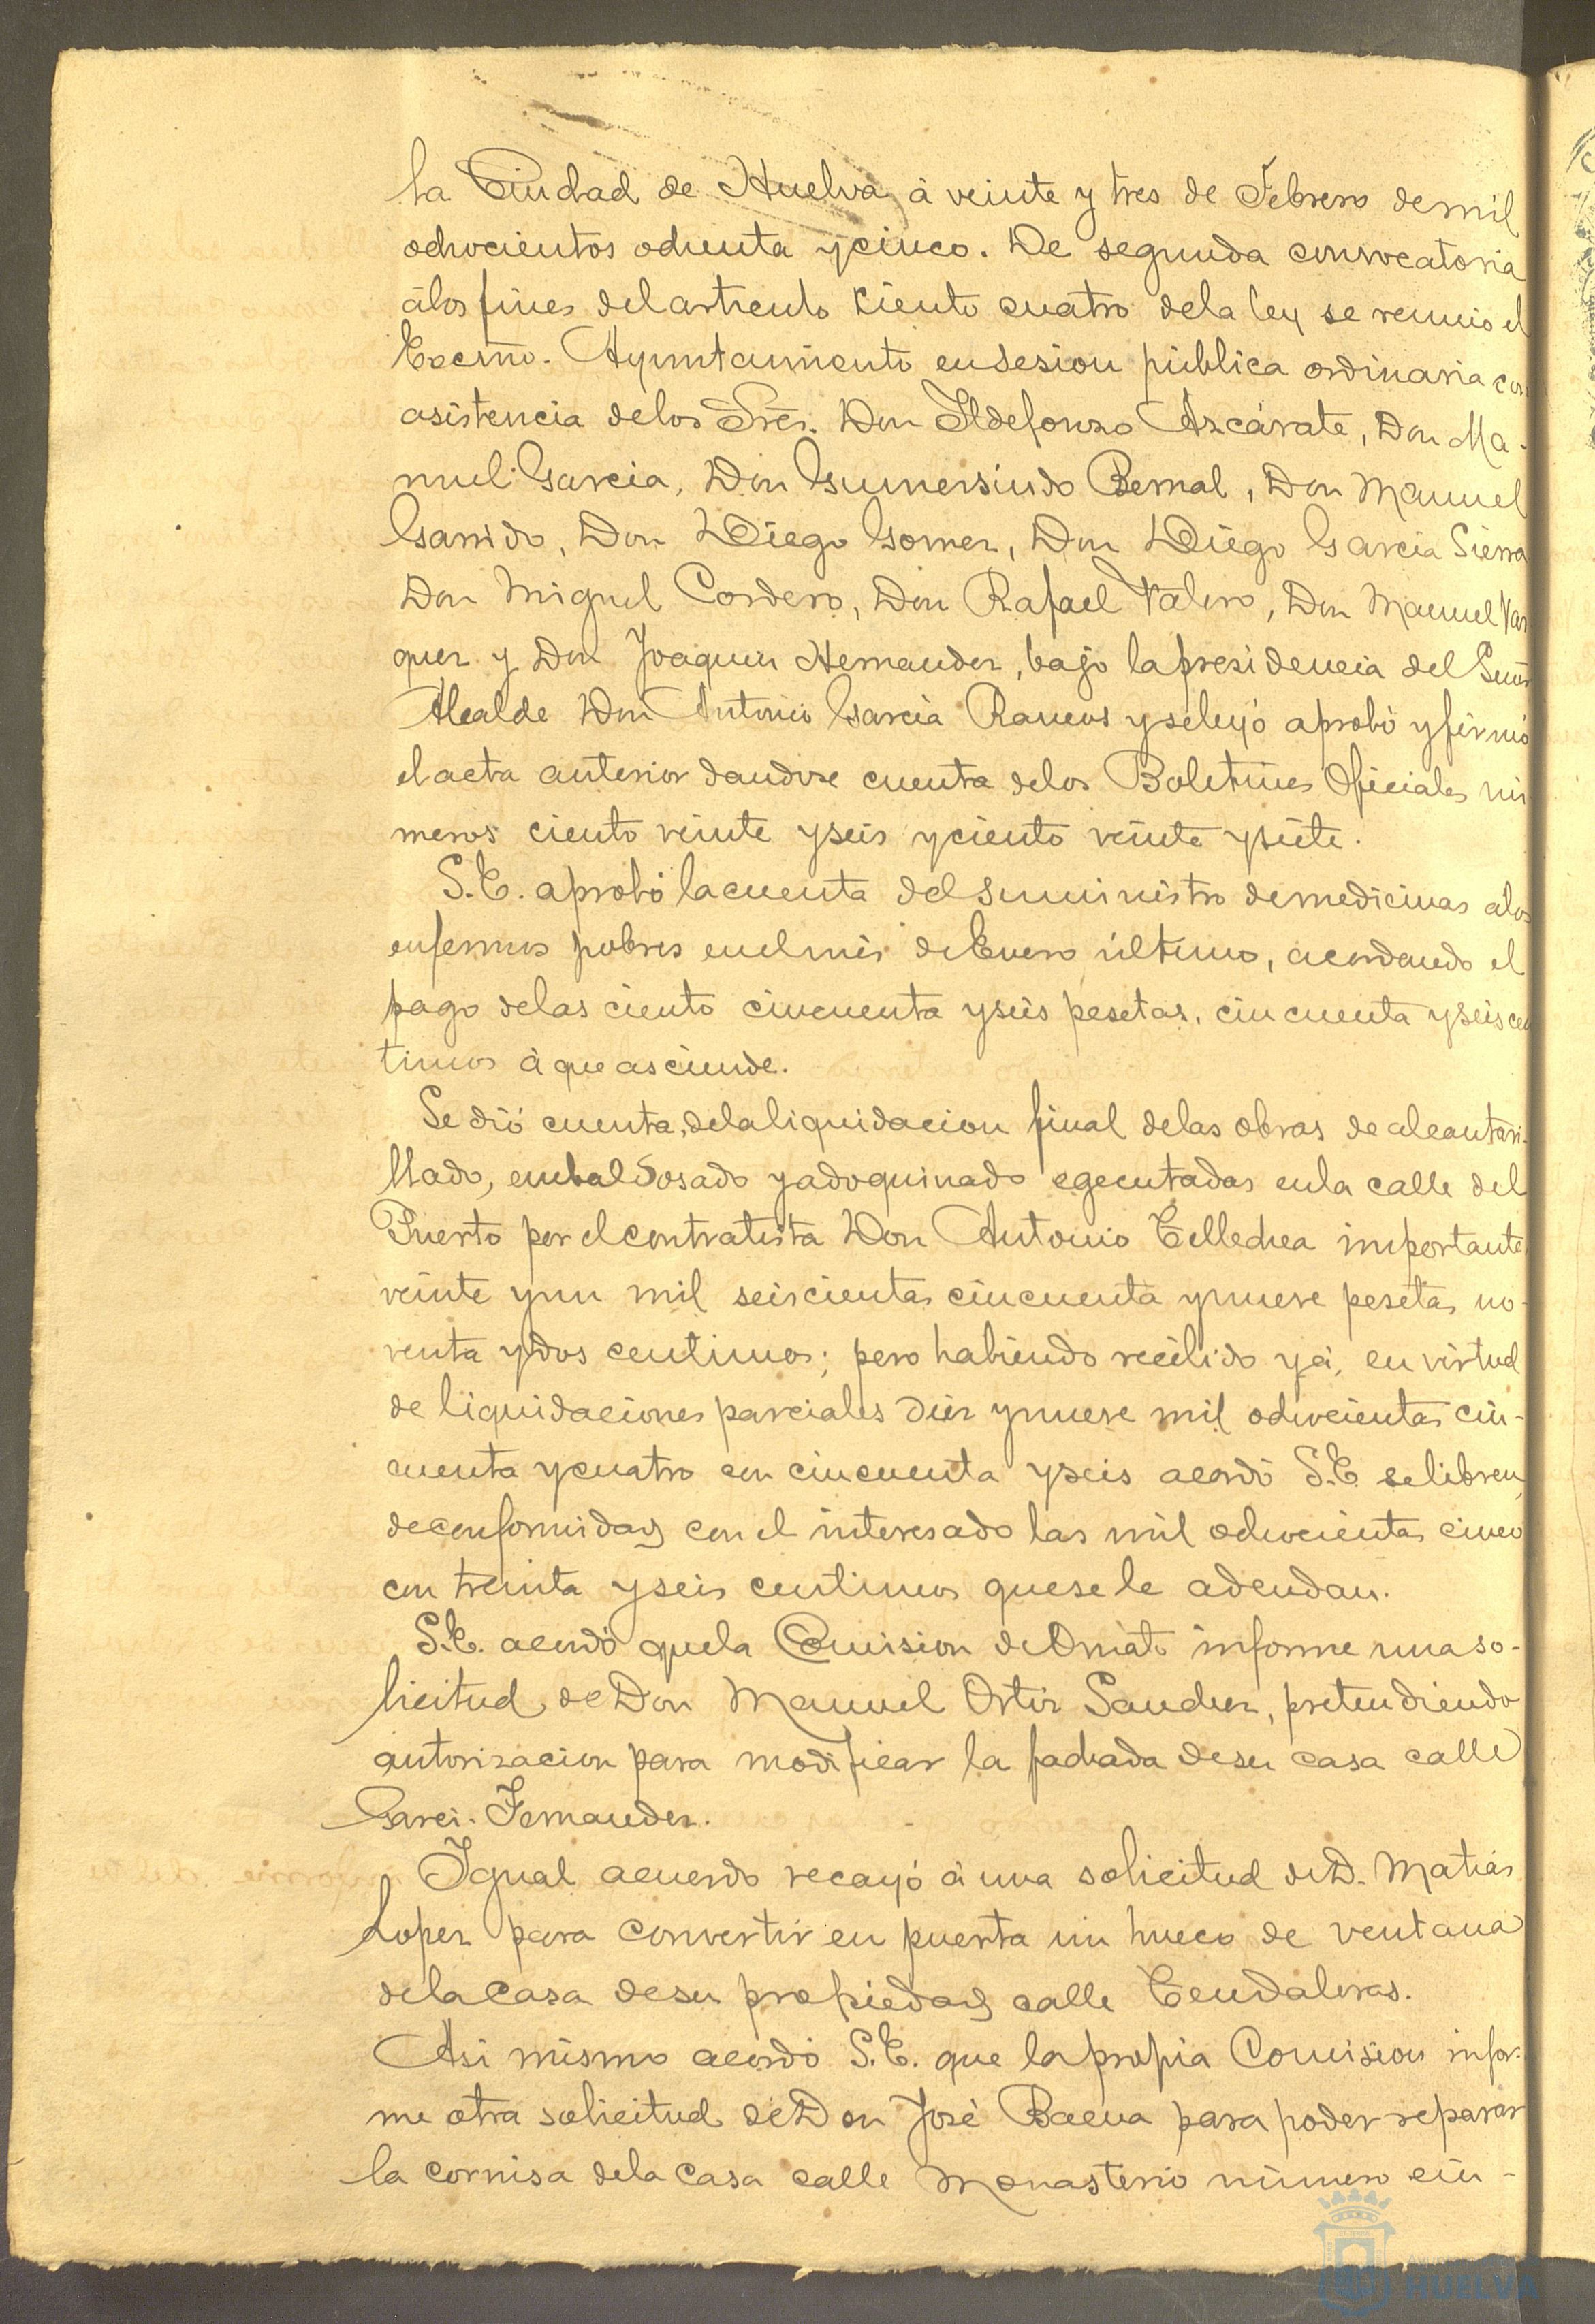 la Ciudad de Huelva à veinte y tres de Febrero de mil
ochocientos ochenta y cinco. De segunda convocatoria
á los fines del articulo ciento cuatro de la ley se reunió el
Excmo. Ayuntamiento en sesion pública ordinaria con
asistencia de los Sres. Don Ildefonzo Azcárate, Don Ma-
nuel Garcia, Don Gumersindo Bernal, Don Manuel
Garrido, Don Diego Gomez, Don Diego Garcia Sierra
Don Miguel Cordero, Don Rafael Valero, Don Manuel Vaz
quez y Don Joaquin Hernandez, bajo la presidencia del Señor
Alcalde Don Antonio Garcia Ramos y se leyó aprobó y firmó
el acta anterior dandose cuenta de los Boletines Oficiales nú
meros ciento veinte y seis y ciento veinte y siete.
S.E. aprobó la cuenta del suministro de medicinas a los
enfermos pobres en el mes de Enero último, acordando el
pago de las ciento cincuenta y seis pesetas, cincuenta y seis cen
timos à que asciende.
Se dió cuenta, de la liquidacion final de las obras de alcantari-
llado, embaldosado y adoquinado egecutadas en la calle del
Puerto por el contratista Don Antonio Tellechea importante
veinte y un mil seiscientas cincuenta y nueve pesetas no-
venta y dos centimos; pero habiendo recibido yá, en virtud
de liquidaciones parciales diez y nueve mil ochocientas cin-
cuenta y cuatro con cincuenta y seis acordó S.E. se libren,
de conformidad con el interesado las mil ochocientas cinco
con treinta y seis centimos que se le adeudan.
S.E. acordó que la Comision de Ornato informe una so-
licitud de Don Manuel Ortiz Sanchez, pretendiendo
autorizacion para modificar la fachada de su casa calle
Garci-Fernandez.
Igual acuerdo recayó á una solicitud de D. Matias
Lopez para convertir en puerta un hueco de ventana
de la casa de su propiedad calle Tendaleras.
Asi mismo acordó S.E. que la propia Comision infor-
me otra solicitud de Don José Baena para poder reparar
la cornisa de la casa calle Monasterio número cin-
HUELVA